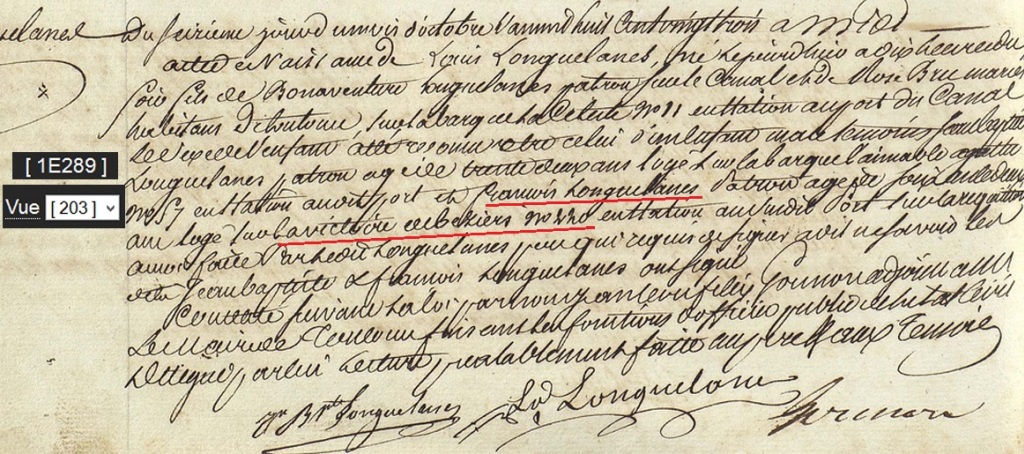 du seizieme jour du mois d'octobre l'an mil huit cent vingt trois a midi
acte de Naissance de Louis Longuelanes, né hier a dix heures du
soir fils de Bonaventure Longuelanes patron sur le Canal et de Rose Bru mariés
habitans De toulouse, sur la barque la Celeste No 11 en station au port du Canal
le sexe de l'enfant a été reconnu etre celui d'un enfant male temoins Jean baptiste
Longuelanes patron agé de trente deux ans logé sur la barque l'aimable
No 57 en station audit port et francois Longuelanes patron agé de
ans logé sur la victoire de beziers No 220 en station au susdit port sur la requisition
a nous faite Par ledit Longuelanes pere qui requis de signer a dit ne savoir les
dits Jean baptiste & francois Longuelanes ont signé
Constaté suivant la loi par nous fils Gounon adjoint au
le Maire de Toulouse faisant les fonctions d'officier public de l'etat civil
delegué par lui Lecture prealablement faite au pere & aux Temoins
Jn Bte Longuelanes
Longuelane
Gounon
[ 1E289 ]
Vue [ 203 ]